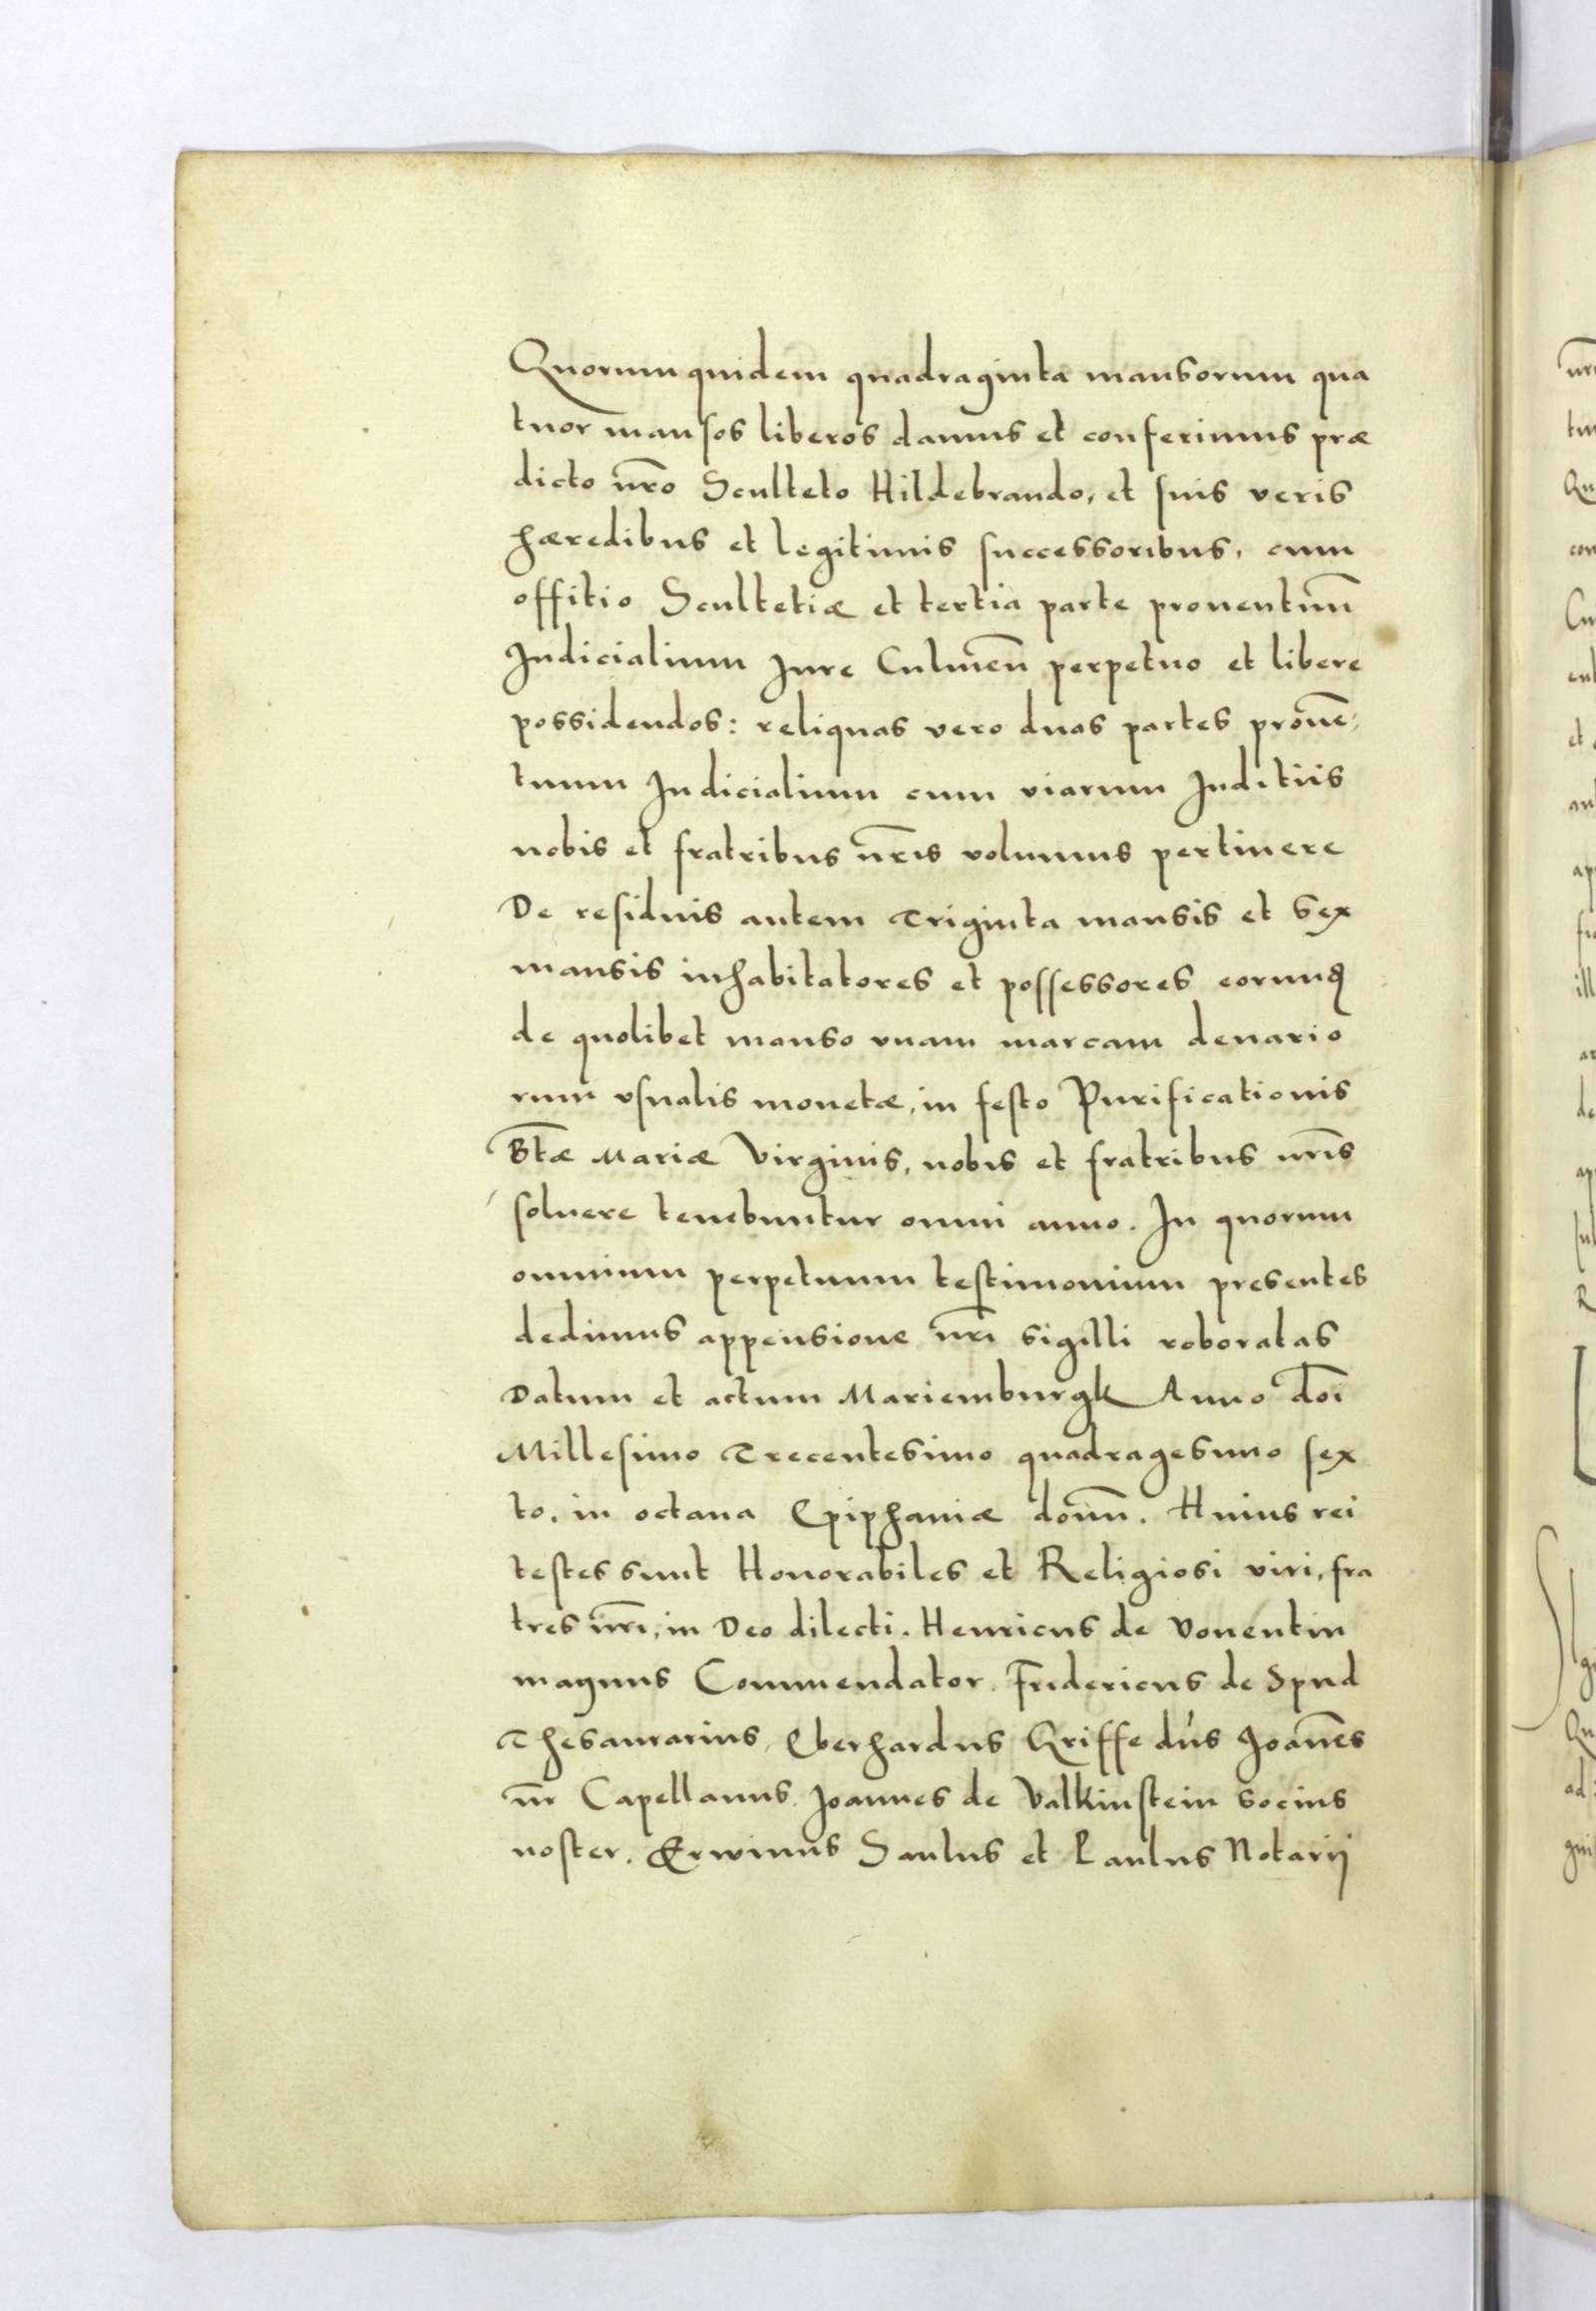 Quorum quidem quadraginta mansorum qua
tuor mansos liberos damus et conferimus præ
dicto nr̃o Sculteto Hildebrando, et suis veris
hæredibus et legitimis successoribus, cum
offitio Scultetiæ et tertia parte prouentuũ
Iudicialium Iure Culmeñ perpetuo et libere
possidendos: reliquas vero duas partes prouẽ
tuum Iudicialium cum viarum Iuditiis
nobis et fratribus nr̃is volumus pertinere
De residuis autem Triginta mansis et Sex
mansis inhabitatores et possessores eorund
de quolibet manso vnam marcam denario
rum vsualis monetæ, in festo Purificationis
Bt̃æ Mariæ Virginis, nobis et fratribus nr̃is
soluere tenebuntur omni anno. In quorum
omnium perpetuum testimonium presentes
dedimus appensione nr̃i sigilli roboratas
Datum et actum Mariemburgk Anno dñi
Millesimo Trecentesimo quadragesimo sex
to, in octaua Epiphaniæ domiñ. Huius rei
testes sunt Honorabiles et Religiosi viri, fra
tres nr̃i, in Deo dilecti. Henricus de Bouentin
magnus Commendator. Fridericus de Spud
Thesaurarius, Eberhardus Griffe dñs Ioañes
nr̃ Capellanus. Ioannes de Valkinstein socius
noster. Erwinus Saulus et Paulus Notarij